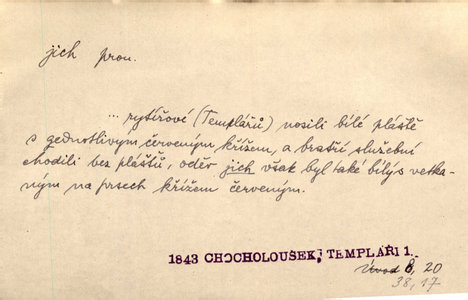 jich pron.
... rytířové (Templářů) nosili bílé pláště
s jednotlivým červeným křížem, a bratří služební
chodili bez plášťů, oděv jich však byl také bílý s vetka-
ným na prsech křížem červeným.
1843 CHOCHOLOUŠEK, TEMPLÁŘI 1.
Úvod 6, 20
38, 17